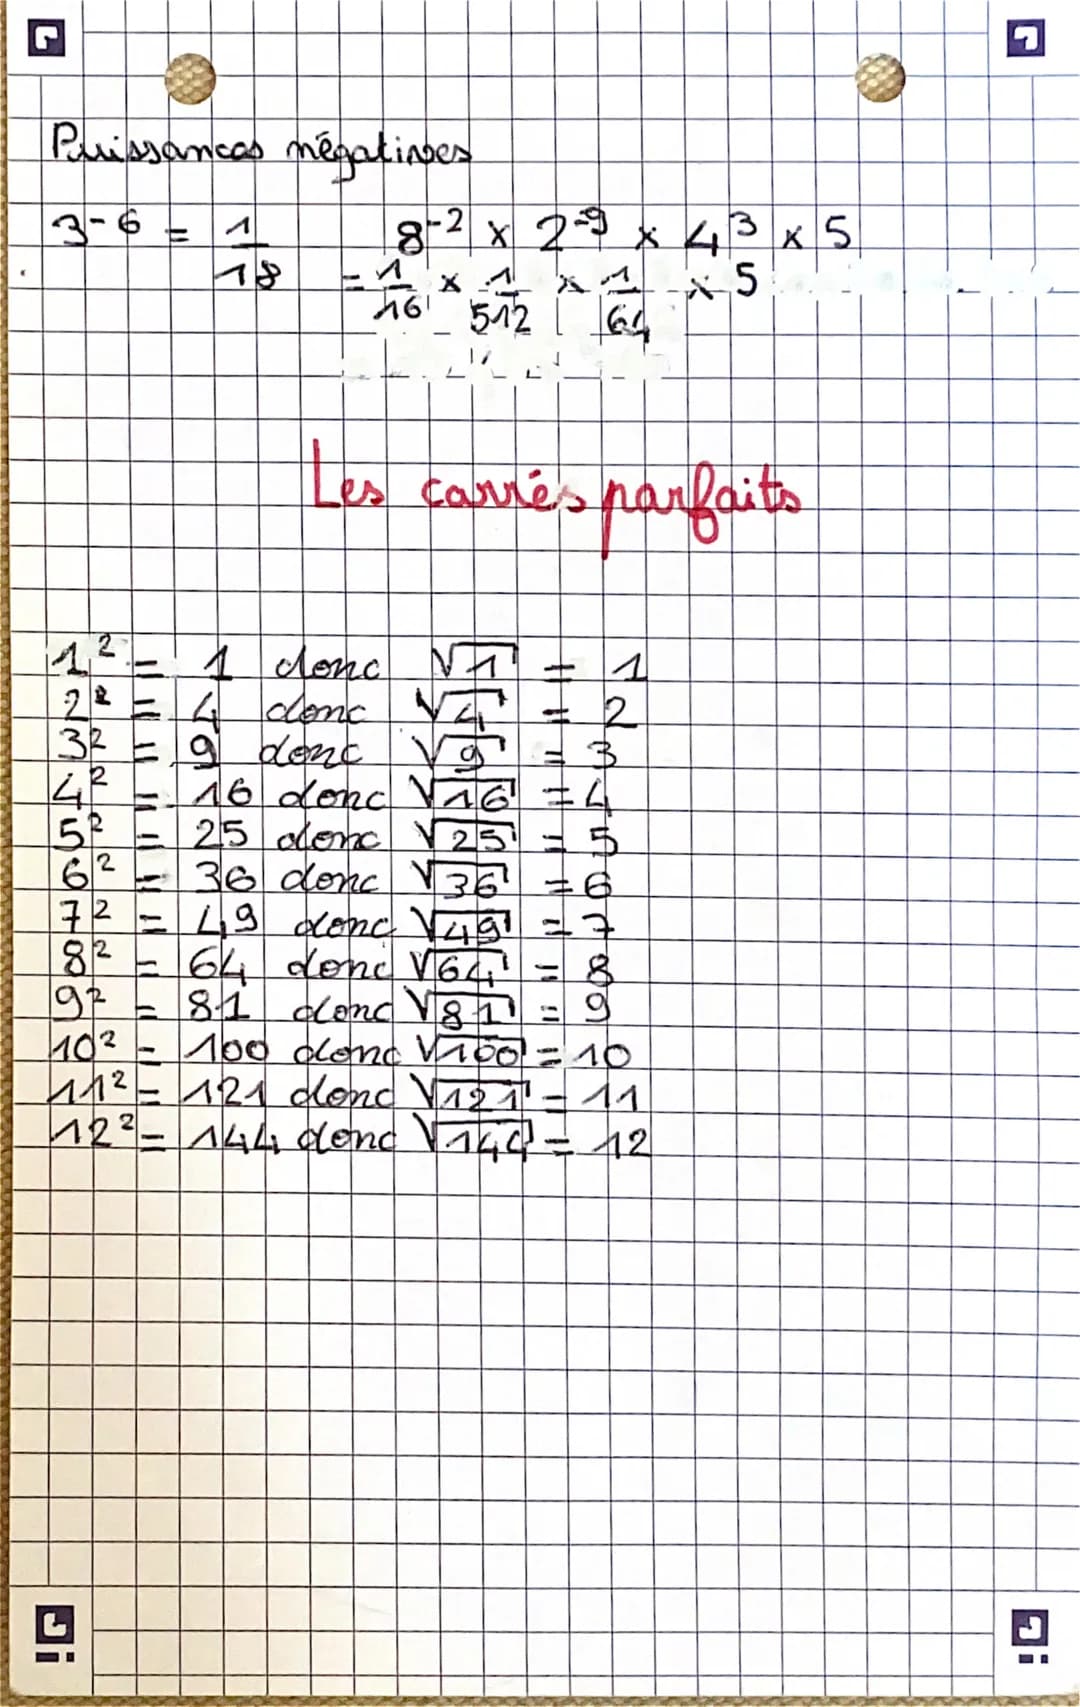 Puissances négatives
3⁻⁶ = 1/18    8⁻² × 2⁻⁹ × 4³ × 5
= 1/16 × 1/512 × 1/64 × 5
Les carrés parfaits
1² = 1 donc √1 = 1
2² = 4 donc √4 = 2
3² = 9 donc √9 = 3
4² = 16 donc √16 = 4
5² = 25 donc √25 = 5
6² = 36 donc √36 = 6
7² = 49 donc √49 = 7
8² = 64 donc √64 = 8
9² = 81 donc √81 = 9
10² = 100 donc √100 = 10
11² = 121 donc √121 = 11
12² = 144 donc √144 = 12